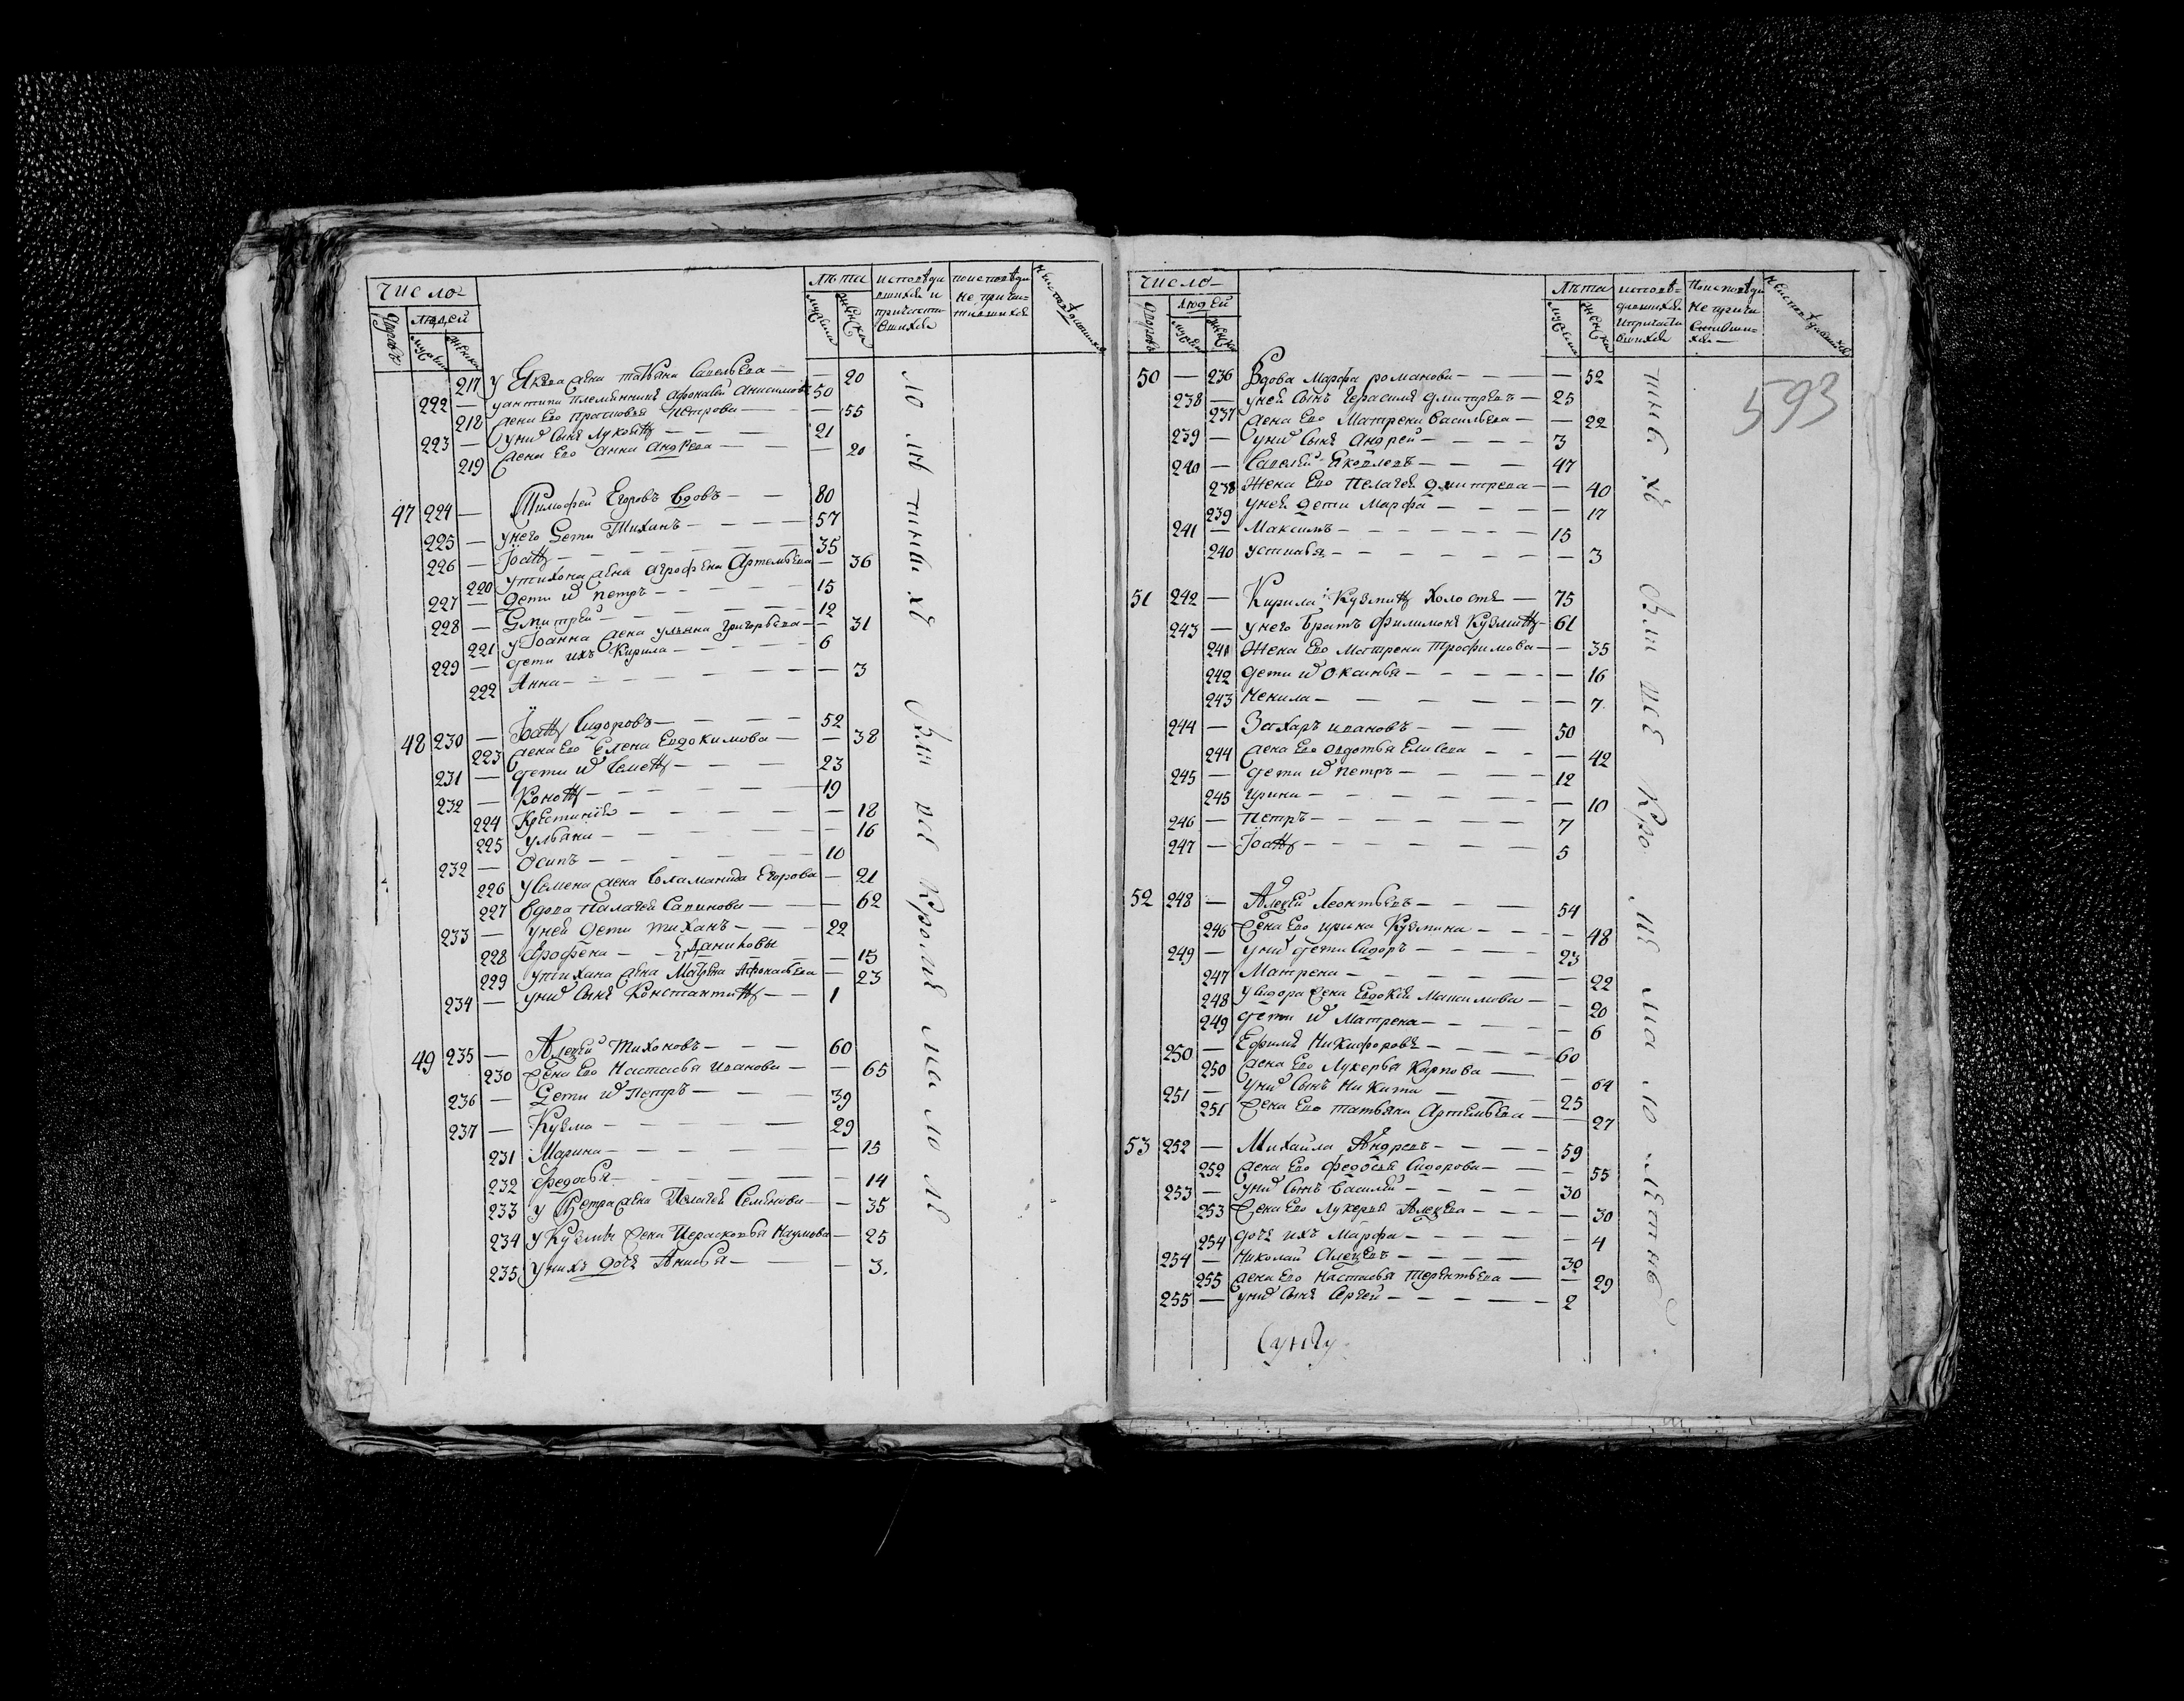 Число
Дворовъ
людей
мужска
женска
Лѣта
мужска
женска
исповѣди
вшихся и
причасти
вшихся
поисповѣди
не причас
тившихся
217 У Якова жена татьяна Савельева — — 20
222 — у антипа племянникъ афонасей анисимовъ 50
218 жена Ево прасковья Петрова — — 55
223 — у ниⷯ сынъ Лукоянъ — — 21
219 жена Ево анна андреева — — 20
47 224 — Тимофей Егоровъ вдовъ — — 80
225 — у него дети Тиханъ — — 57
226 — Їоаннъ — — 35
220 у тихона жена агрофена Артемьева — 36
227 — дети иⷯ петръ — — 15
228 — Дмитрей — — 12
221 у Їоанна жена ульяна григорьева — 31
229 — дети ихъ Кирила — — 6
222 Анна — — 3
48 230 — Їоаннъ Сидоровъ — — 52
223 жена Ево Елена Евдокимова — — 38
231 — дети иⷯ Семенъ — — 23
232 — Кононъ — — 19
224 Крестинія — — 18
225 ульяна — — 16
232 — Осипъ — — 10
226 у Семена жена Соламанида Егорова — 21
227 вдова палагея Савинова — — 62
233 — у ней дети тиханъ — — 22
228 агрофена — — Даниловы — 15
229 у тихана жена Матрена Афонасьева — 23
234 — у ниⷯ сынъ Константинъ — — 1
49 235 — Алексей Тихоновъ — — 60
230 жена Ево Настасья иванова — — 65
236 — Дети иⷯ Петръ — — 39
237 — Кузма — — 29
231 Марина — — 15
232 федосья — — 14
233 у Петра жена Пелагея Семенова — 35
234 у Кузмы жена Парасковья Наумова — 25
235 у нихъ дочь Анисья — — 3.
Число
дворовъ
людей
мужска
женска
Лѣта
мужска
женска
исповѣ-
давшихся
и причасти
вшихся
поисповѣди
не прича
стивши-
хся —
593
50 — 236 Вдова Марфа романова — — 52
238 — у ней сынъ герасимъ дмитревъ — 25
237 жена Ево Матрена васильева — — 22
239 — у ниⷯ сынъ Андрей — — 3
240 — Савелей Яковлевъ — — 47
238 Жена Ево Пелагея дмитрева — — 40
239 у ней дети Марфа — — 17
241 — Максимъ — — 15
240 устинья — — 3
51 242 — Кирила Кузминъ холостъ — 75
243 — у него братъ филимонъ Кузминъ — 61
241 Жена Ево матрена трофимова — — 35
242 дети иⷯ оксинья — — 16
243 Ненила — — 7
244 — Захаръ ивановъ — — 50
244 жена Ево овдотья Елисева — — 42
245 — дети иⷯ петръ — — 12
245 ирина — — 10
246 — Петръ — — 7
247 — Їоаннъ — — 5
52 248 — Алексей Леонтьевъ — — 54
246 жена Ево ирина Кузмина — — 48
249 — у ниⷯ дети Сидоръ — — 23
247 Матрена — — 22
248 у Сидора жена Евдокія Максимова — 20
249 дети иⷯ Матрена — — 6
250 — Ефимъ Никифоровъ — — 60
250 жена Ево Лукерья Карпова — — 64
251 — у ниⷯ сынъ Никита — — 25
251 жена Ево татьяна Артемьева — — 27
53 252 — Михайла Андреевъ — — 59
252 жена Ево федосья Сидорова — — 55
253 — у ниⷯ сынъ василей — — 30
253 жена Ево лукерья Алексева — — 30
254 дочь ихъ Марфа — — 4
254 — Николай Алексевъ — — 30
255 жена Ево Настасья Терентьева — — 29
255 — у ниⷯ сынъ Сергей — — 2